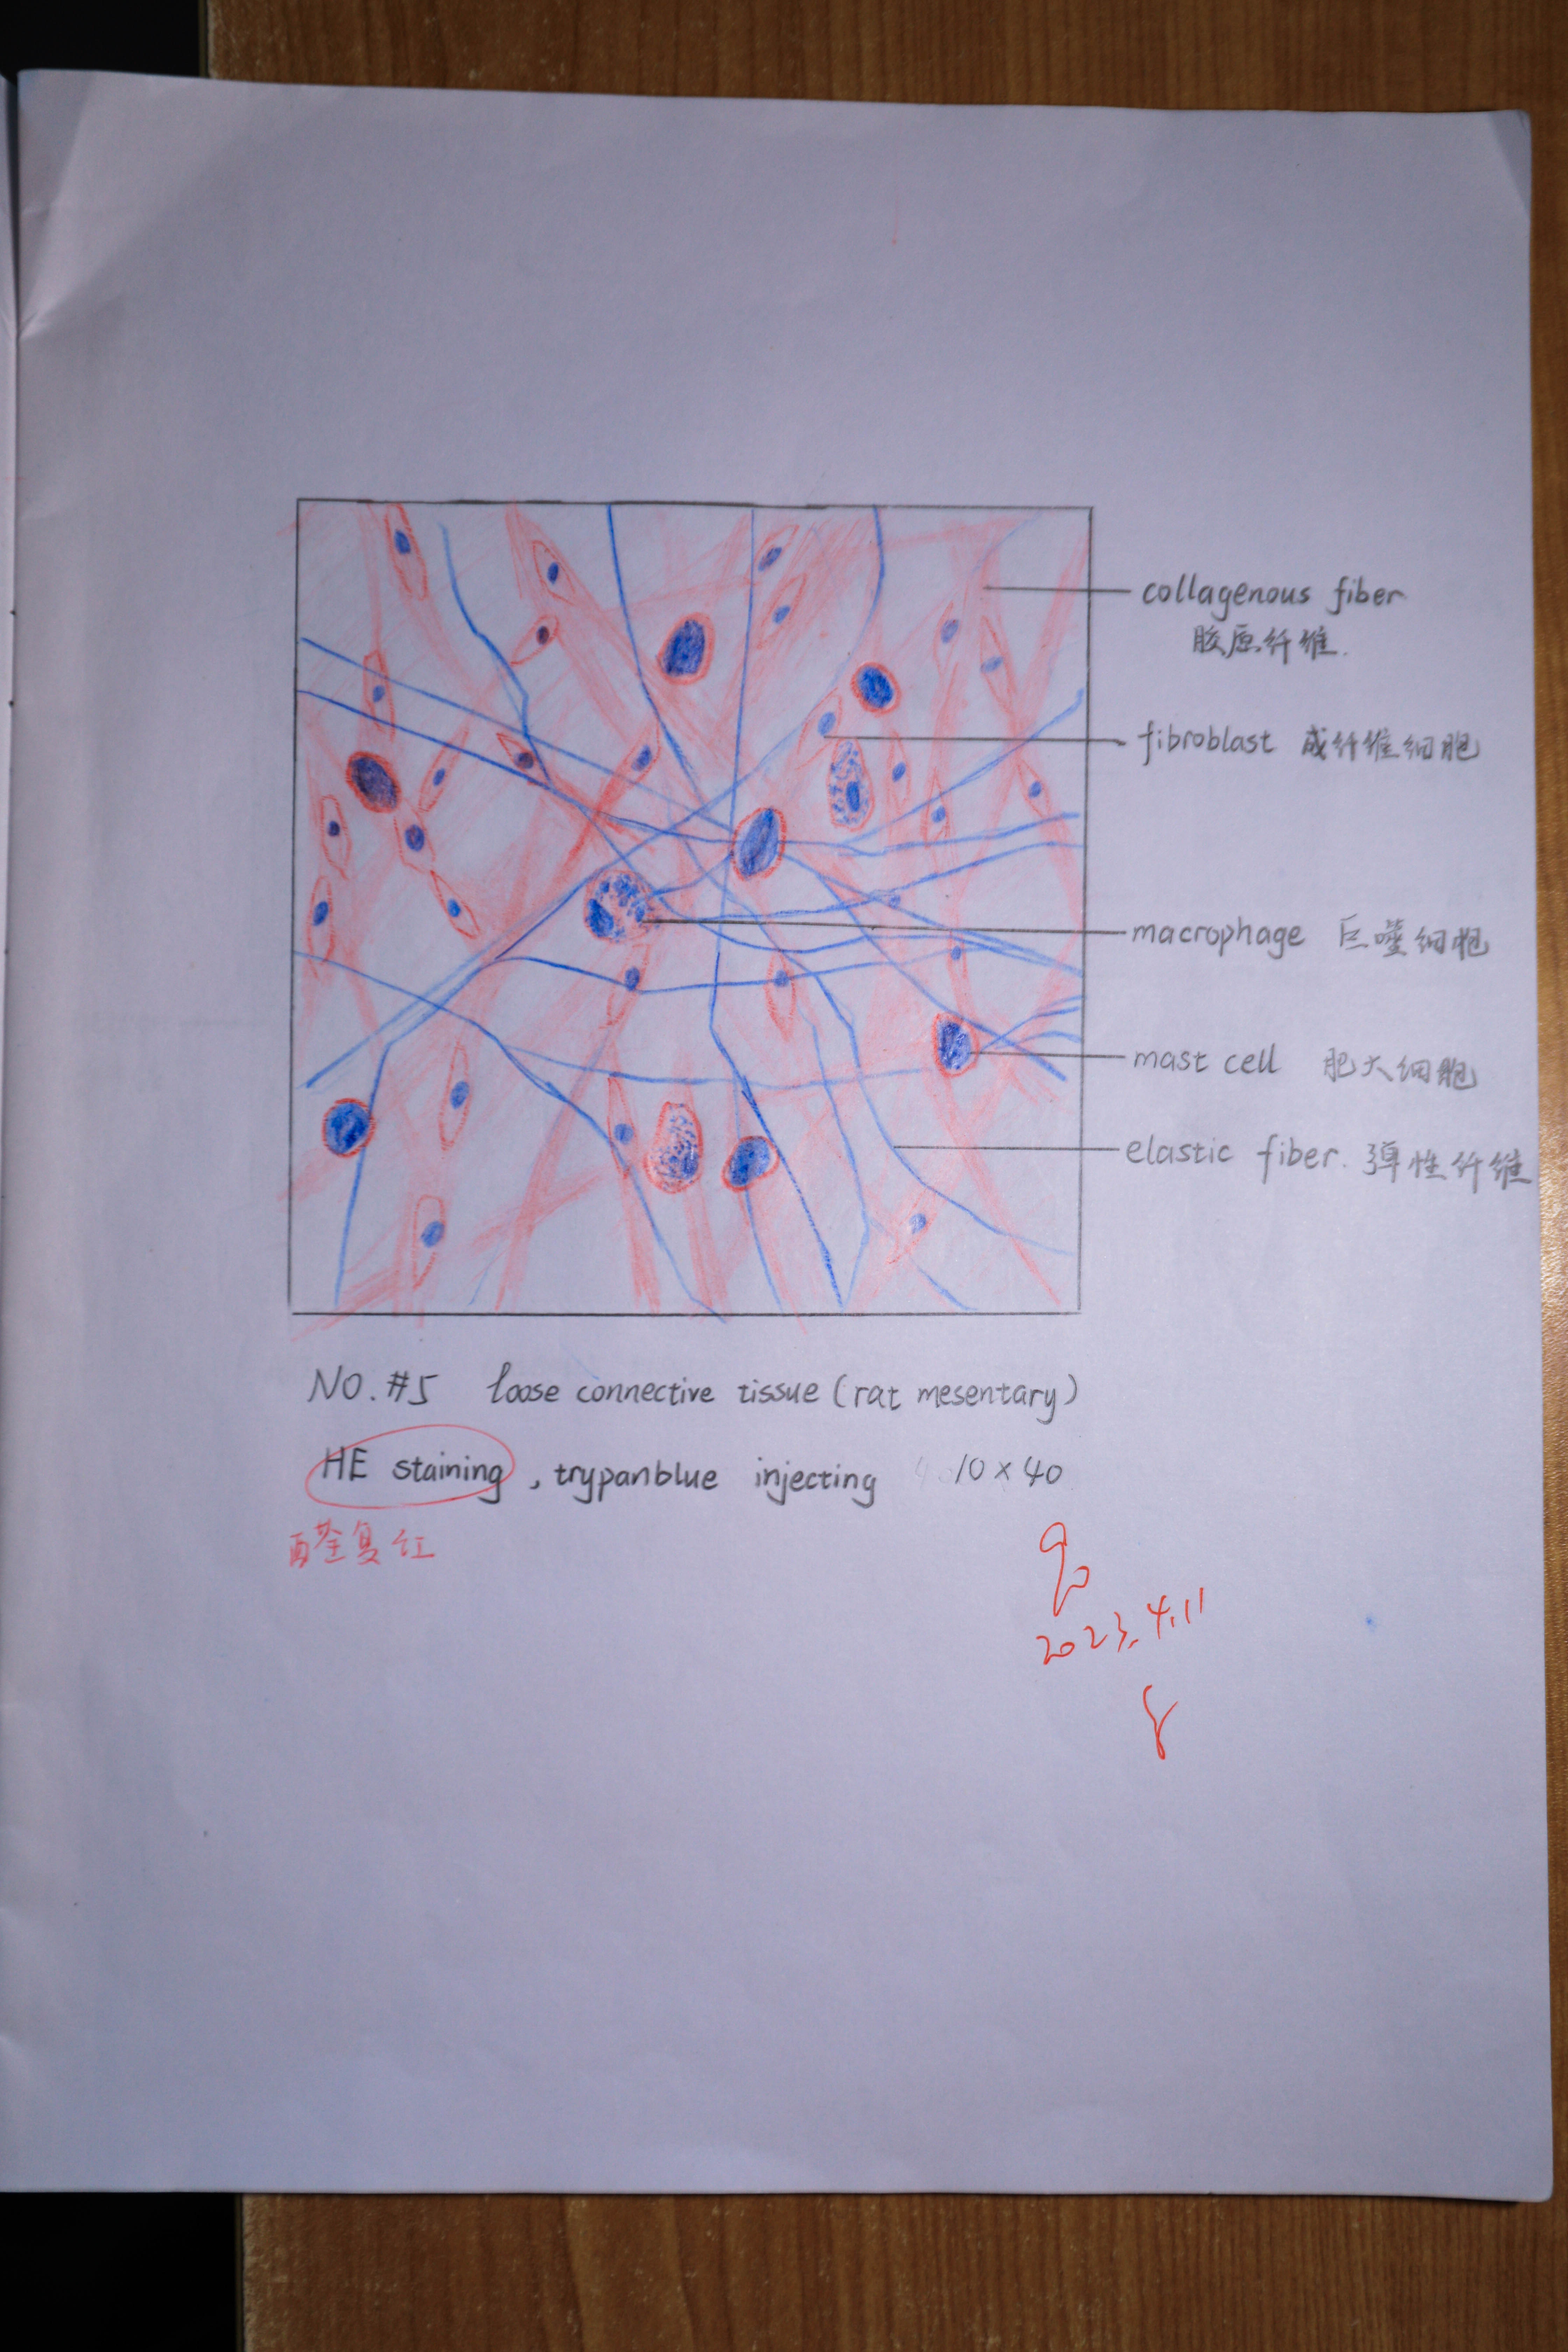 collagenous fiber
胶原纤维.
fibroblast 成纤维细胞
macrophage 巨噬细胞
mast cell 肥大细胞
elastic fiber. 弹性纤维
NO. #5 loose connective tissue (rat mesentary)
HE staining, trypanblue injecting 10 × 40
醛复红
90
2023.4.11